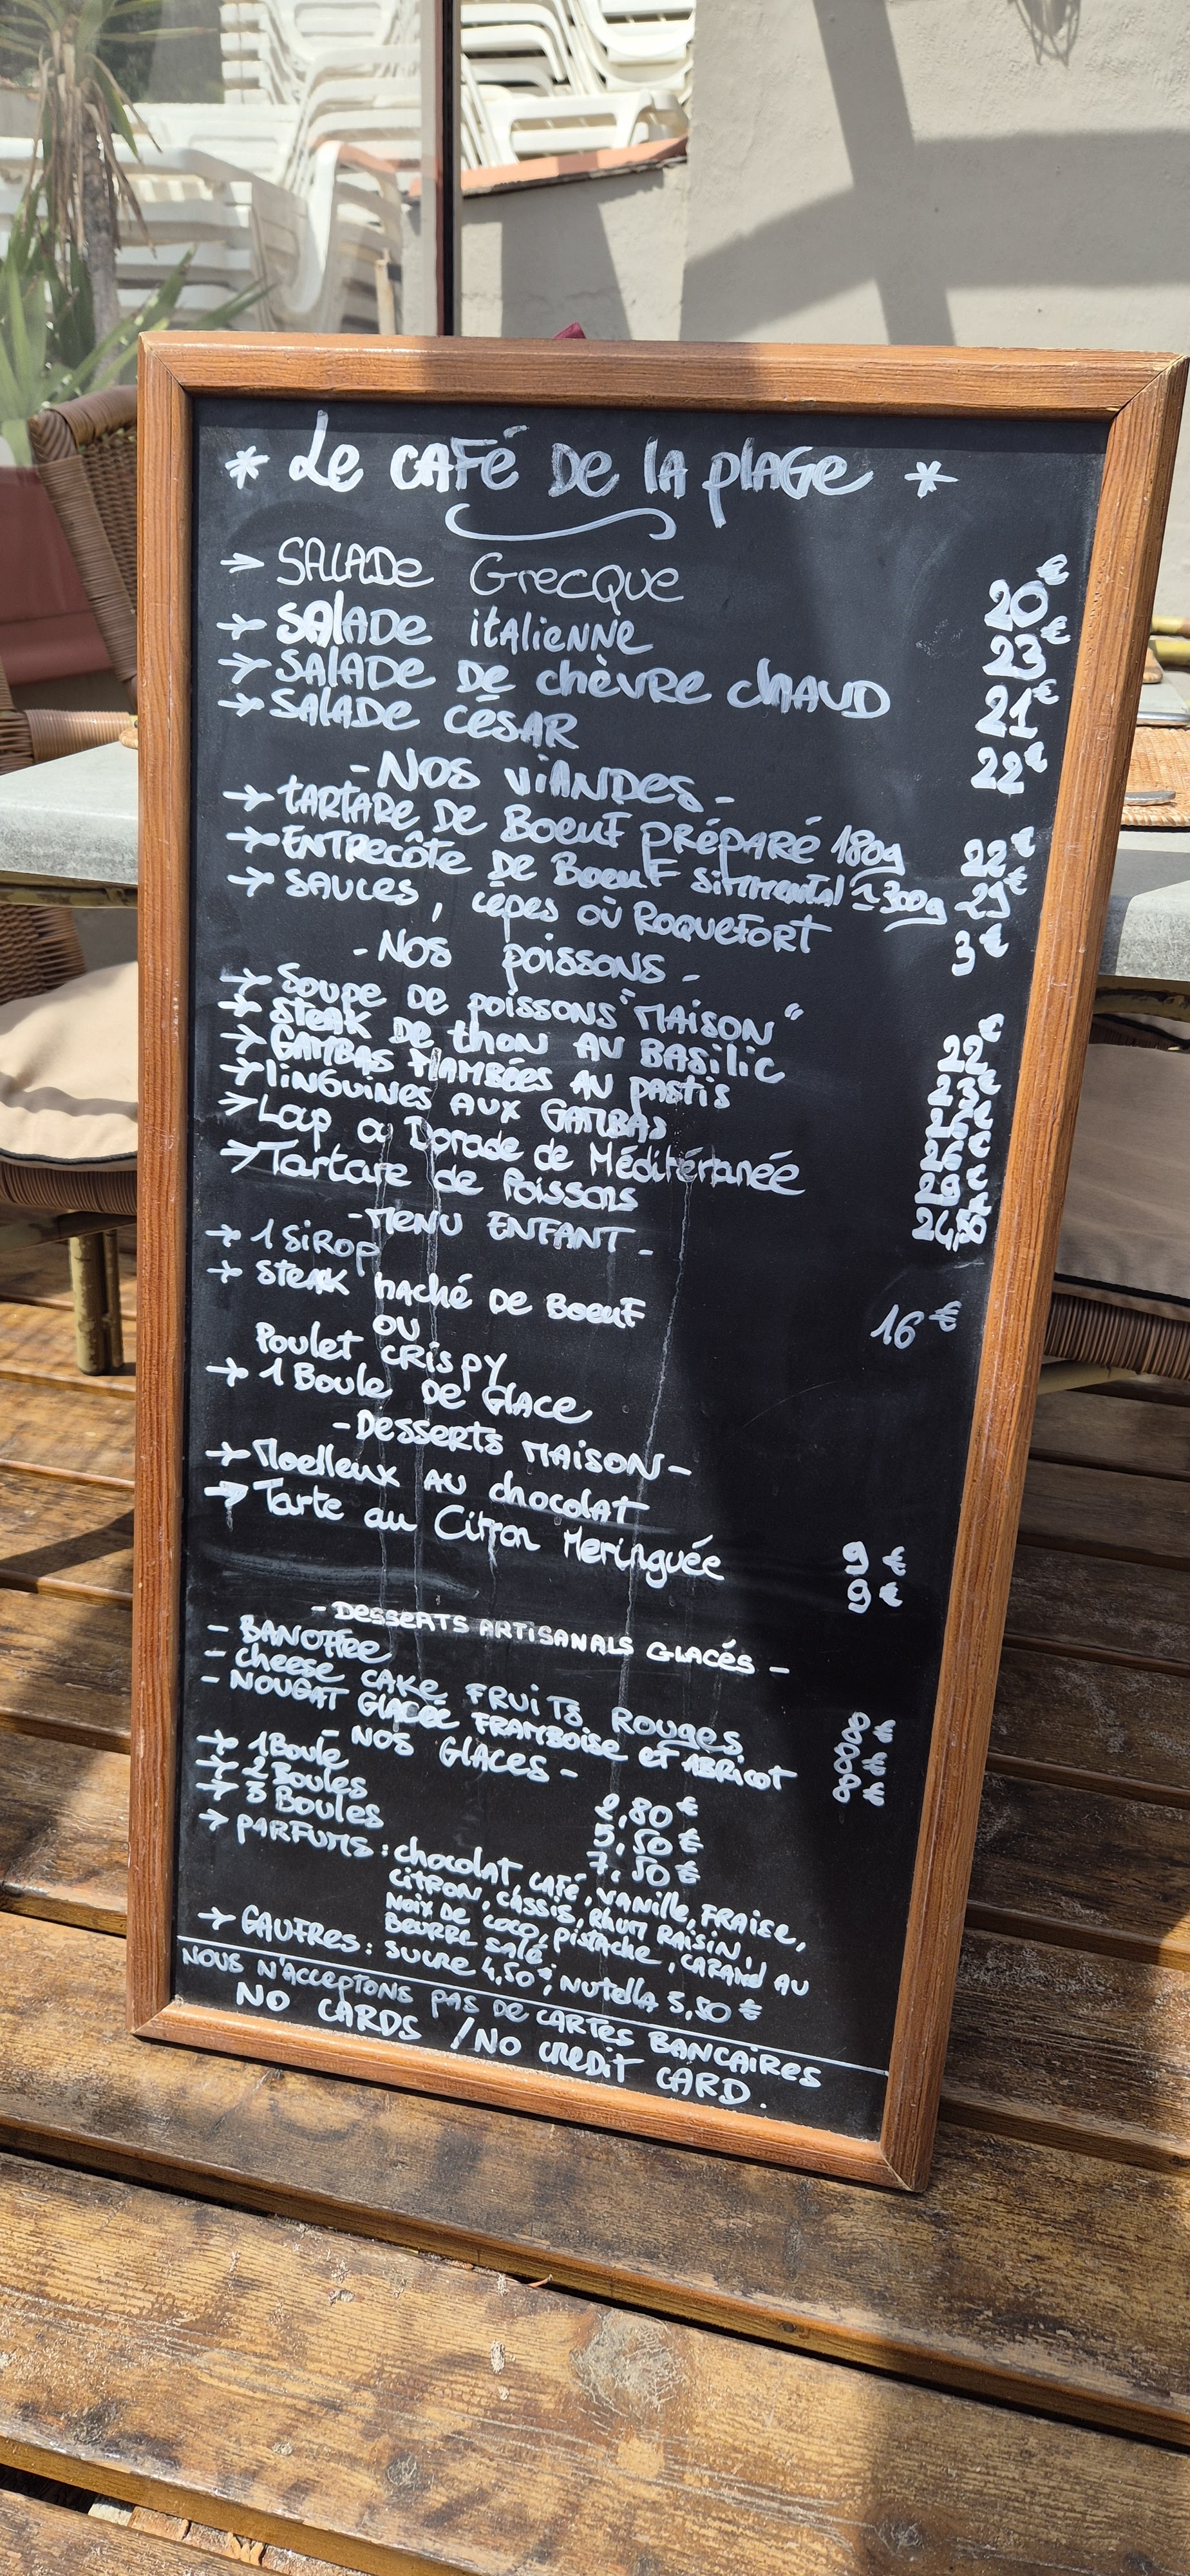 * Le CAFé De lA plAGe *
→ SALADe GrecQue 20€
→ SALADe itAlienne 23€
→ SALADe De chèvRe chAUD 21€
→ SALADe CéSAR 22€
- Nos viANDes -
→ tARtARe De BoeuF PRéPARé 180g 22€
→ ENTRecôte De BoeuF simmental ≃ 300g 29€
→ SAUCes, cèpes où RoqueFoRt 3€
- Nos poissons -
→ Soupe De poissons "MAISON" 22€
→ Steak De thon AU BAsilic 23€
→ GAMBAS FlAMBées AU pAstis
→ liNGUiNes AUX GAMBAS 26€
→ Loup ou Dorade de Méditérranée 29€
→ Tartare de Poissons 24,50€
- MeNU ENFANT -
→ 1 SiRop
→ STeAK haché De BoeuF 16€
OU
Poulet CRispy
→ 1 Boule De GlAce
- Desserts MAISON -
→ Moelleux AU chocolAT 9€
→ Tarte au Citron Meringuée 9€
- Desserts ARTISANALS GlAcés -
- BANOffee 8€
- cheese CAKe FRUiTs Rouges 8€
- NOUGAT GlAcée FRAMBoise et ABRicot 8€
- NOS GlAces -
→ 1 Boule 2,80€
→ 2 Boules 5,50€
→ 3 Boules 7,50€
→ PARFUMS : chocolAT, CAFé, VANille, FRAise,
CITRON, CASSIS, RhuM RAISIN,
NOIX De COCO, pistAche, CARAMel AU
BeURRe SAlé
→ GAUFRes : SUCRe 4,50€; NUTellA 5,50€
NOUS N'AccepTONS PAS De CARTes BANCAIRes
NO CARDS / NO CReDiT CARD.